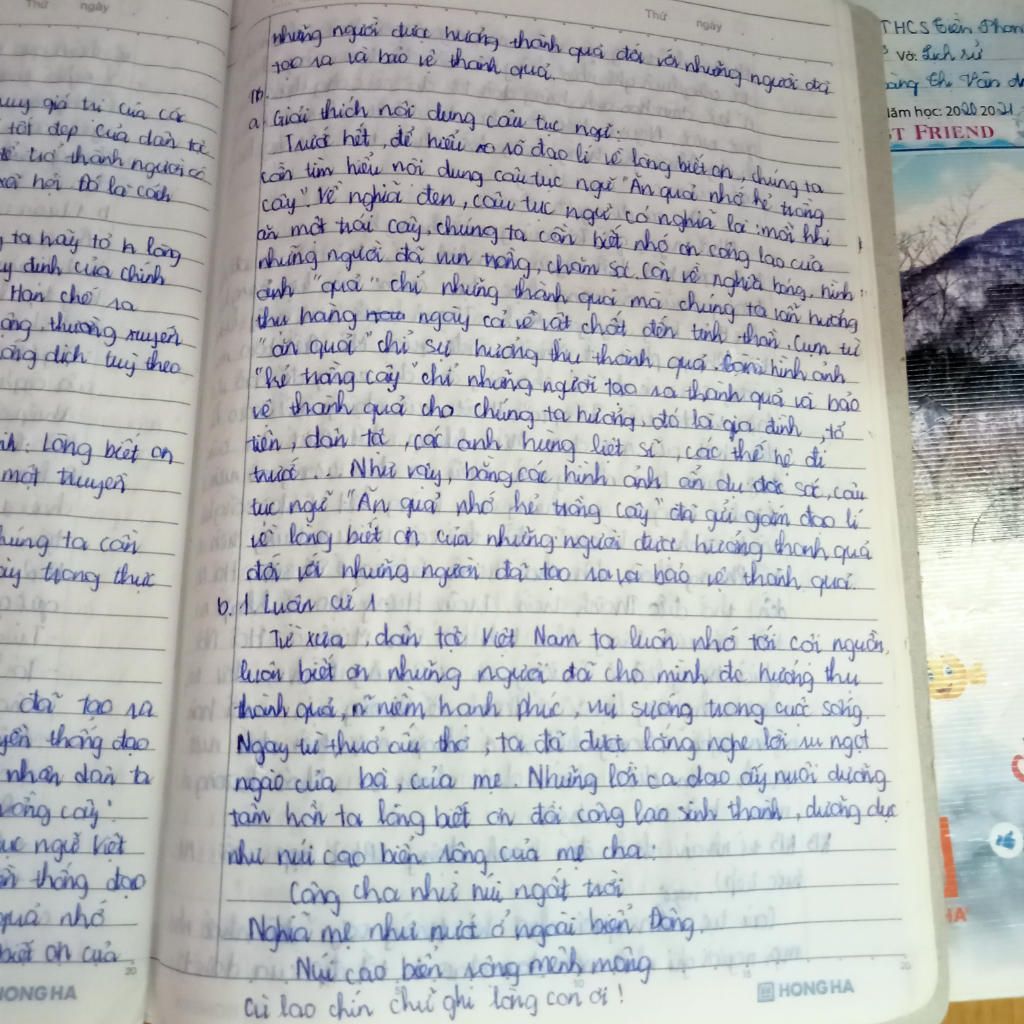 Thứ ngày
những người được hưởng thành quả đối với những người đã
tạo ra và bảo vệ thành quả.
a, Giải thích nội dung câu tục ngữ.
Trước hết, để hiểu rõ đạo lí về lòng biết ơn, chúng ta
cần tìm hiểu nội dung câu tục ngữ "Ăn quả nhớ kẻ trồng
cây". Về nghĩa đen, câu tục ngữ có nghĩa là: mỗi khi
ăn một trái cây, chúng ta cần biết nhớ ơn công lao của
những người đã vun trồng, chăm sóc. Còn về nghĩa bóng, hình
ảnh "quả" chỉ những thành quả mà chúng ta vẫn hưởng
thụ hàng ngày cả về vật chất đến tinh thần. Cụm từ
"ăn quả" chỉ sự hưởng thụ thành quả. Còn hình ảnh
"kẻ trồng cây" chỉ những người tạo ra thành quả và bảo
vệ thành quả cho chúng ta hưởng, đó là gia đình, tổ
tiên, dân tộc, các anh hùng liệt sĩ, các thế hệ đi
trước... Như vậy, bằng các hình ảnh ẩn dụ đặc sắc, câu
tục ngữ "Ăn quả nhớ kẻ trồng cây" đã gửi gắm đạo lí
về lòng biết ơn của những người được hưởng thành quả
đối với những người đã tạo ra và bảo vệ thành quả.
b. 1. Luận cứ 1.
Từ xưa, dân tộc Việt Nam ta luôn nhớ tới cội nguồn,
luôn biết ơn những người đã cho mình đc hưởng thụ
thành quả, niềm hạnh phúc, vui sướng trong cuộc sống.
Ngay từ thuở ấu thơ, ta đã được lắng nghe lời ru ngọt
ngào của bà, của mẹ. Những lời ca dao ấy nuôi dưỡng
tâm hồn ta lòng biết ơn đối công lao sinh thành, dưỡng dục
như núi cao biển rộng của mẹ cha:
Công cha như núi ngất trời
Nghĩa mẹ như nước ở ngoài biển Đông
Núi cao biển rộng mênh mông
Cù lao chín chữ ghi lòng con ơi!
HONG HA
uy giá trị của các
tốt đẹp của dân tộc
trở thành người có
xã hội. Đó là cách
ta hãy tỏ lòng
định của chính
Hạn chế
thường xuyên
dịch tuỳ theo
Lòng biết ơn
một truyền
húng ta cần
trong thực
đã tạo ra
yền thống đạo
nhân dân ta
trồng cây"
ục ngữ Việt
thống đạo
quả nhớ
biết ơn của
HONG HA
THCS Tiền Phong
Vở: Lịch sử
Thị Vân
Năm học: 2020 2021
T FRIEND